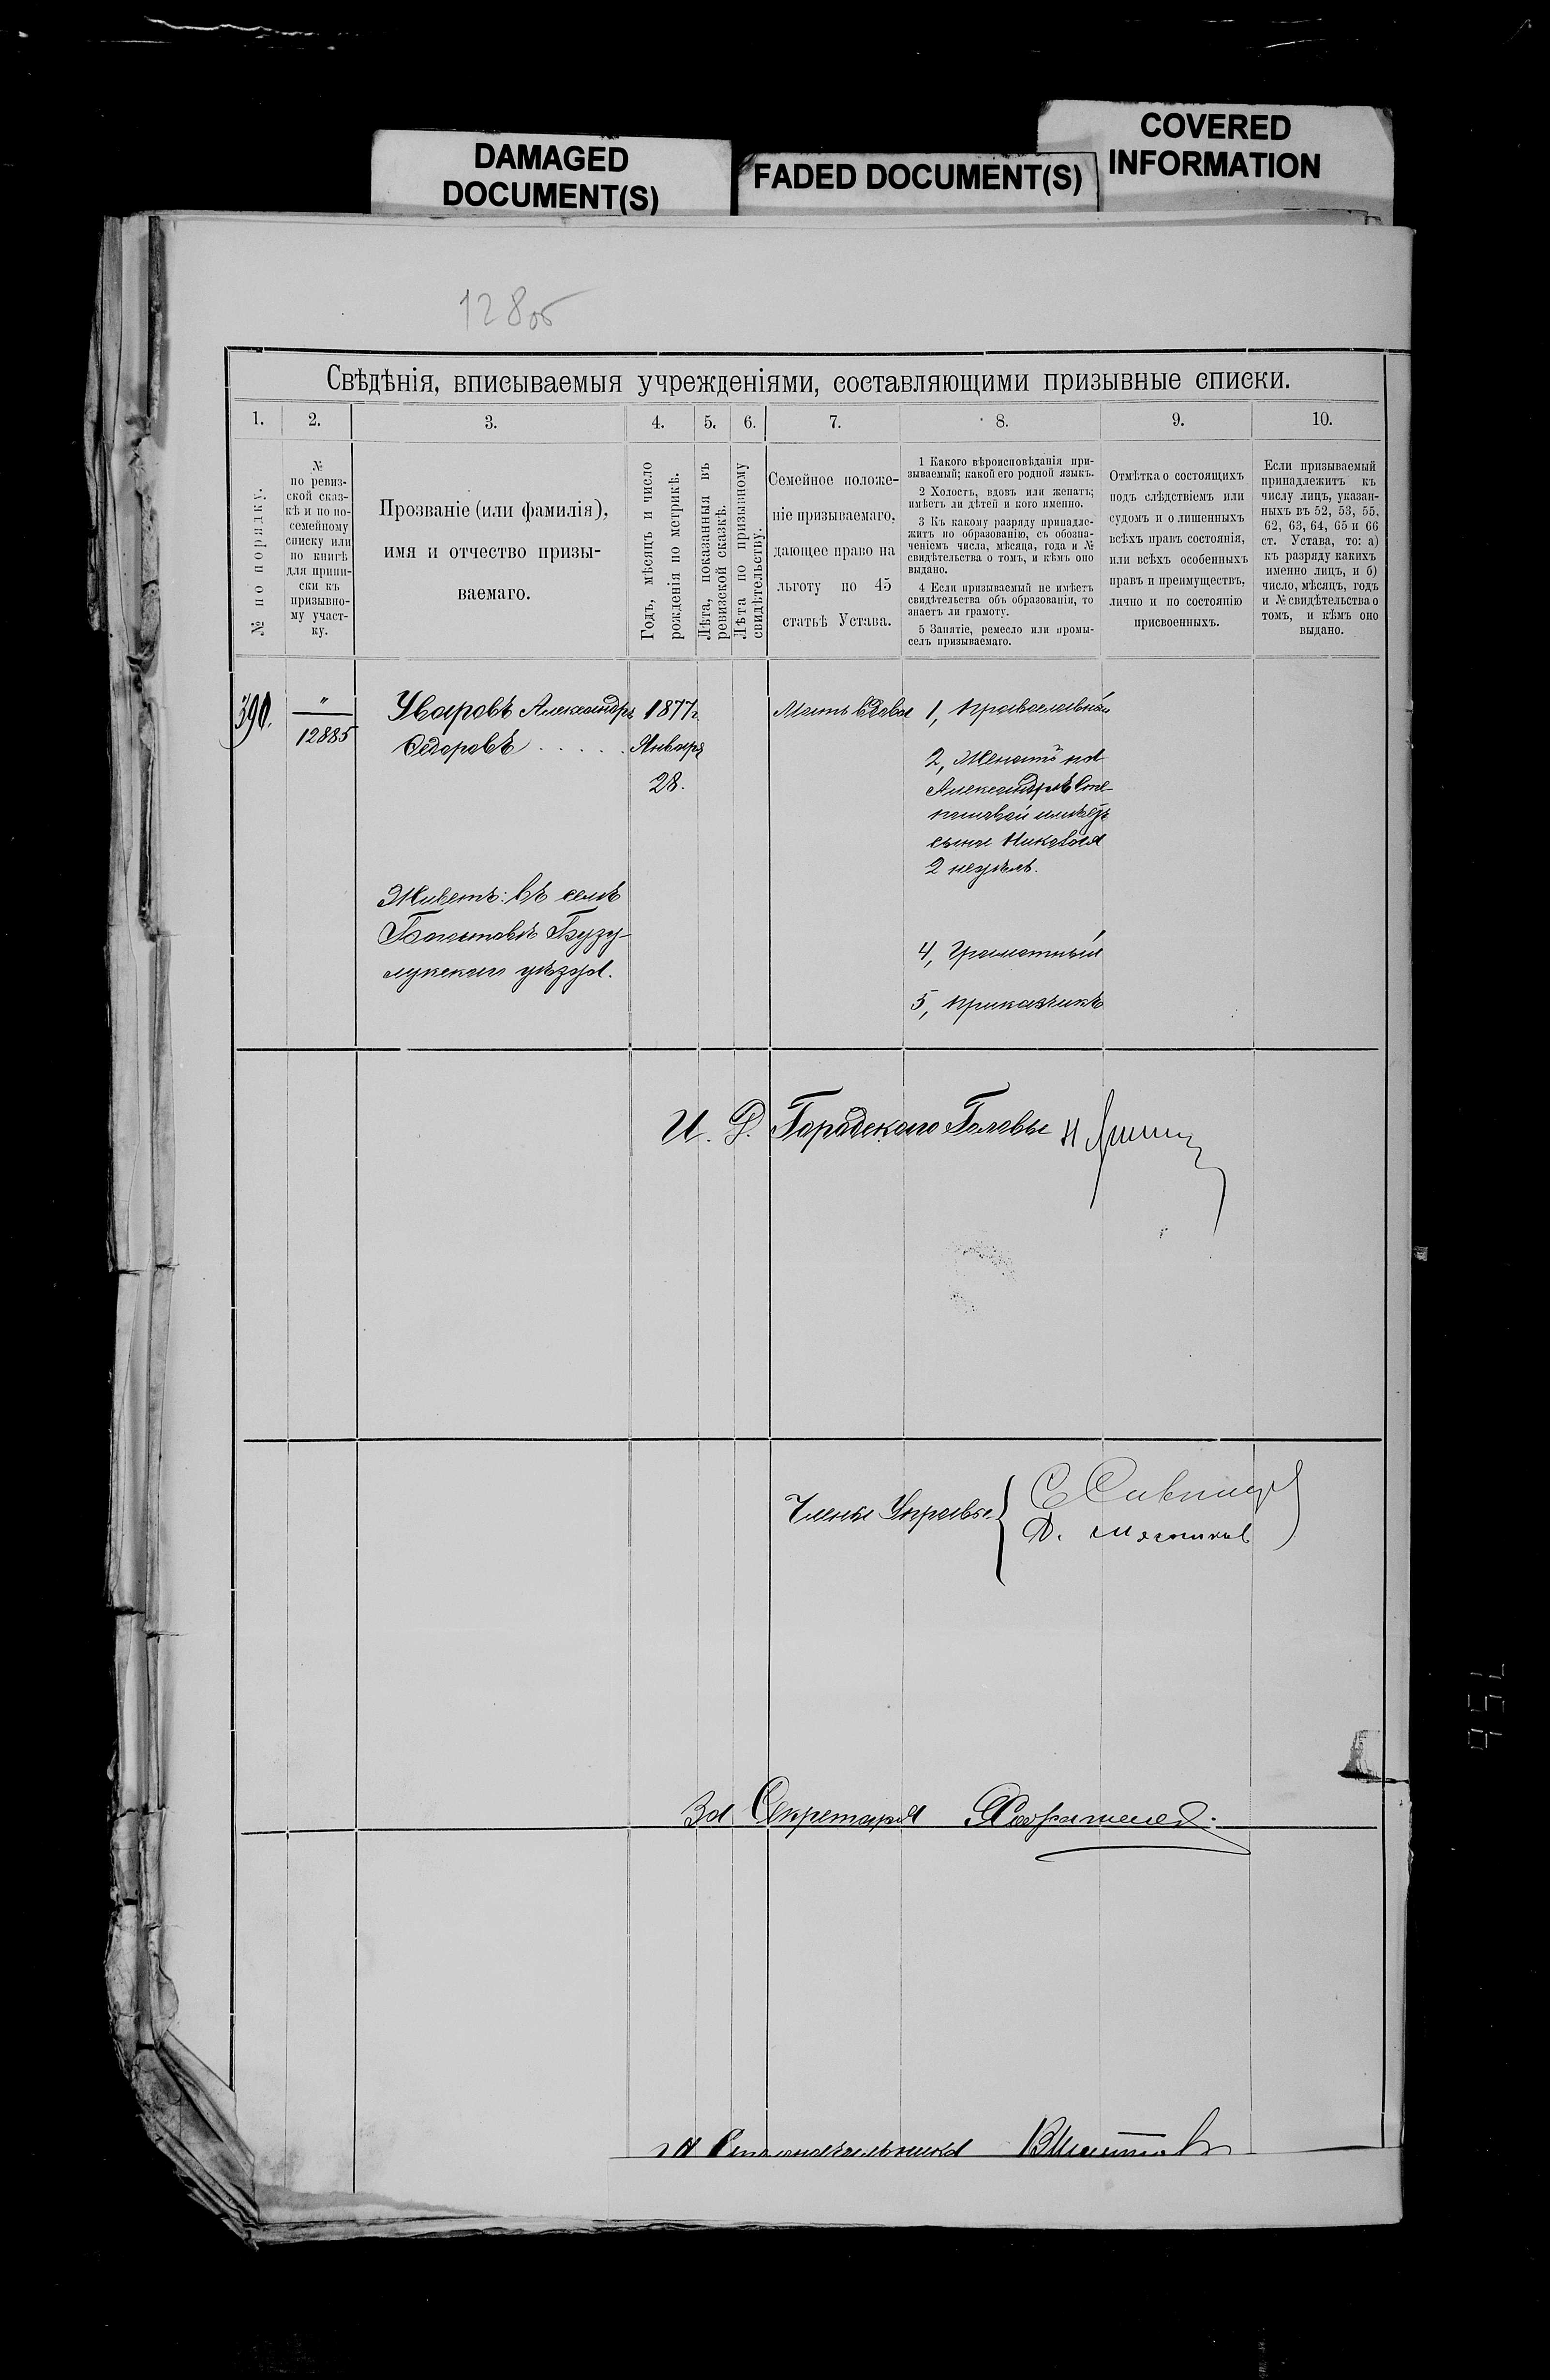 DAMAGED
DOCUMENT(S)
FADED DOCUMENT(S)
COVERED
INFORMATION
128об
Свѣдѣнія, вписываемыя учрежденіями, составляющими призывные списки.
1. 2. 3. 4. 5. 6. 7. 8. 9. 10.
№ по порядку.
№
по ревиз-
ской сказ-
кѣ и по по-
семейному
списку или
по книгѣ
для припи-
ски къ
призывно-
му участ-
ку.
Прозваніе (или фамилія),
имя и отчество призы-
ваемаго.
Годъ, мѣсяцъ и число
рожденія по метрикѣ.
Лѣта, показанныя въ
ревизской сказкѣ.
Лѣта по призывному
свидѣтельству.
Семейное положе-
ніе призываемаго,
дающее право на
льготу по 45
статьѣ Устава.
1 Какого вѣроисповѣданія при-
зываемый; какой его родной языкъ.
2 Холостъ, вдовъ или женатъ;
имѣетъ ли дѣтей и кого именно.
3 Къ какому разряду принадле-
житъ по образованію, съ обозна-
ченіемъ числа, мѣсяца, года и №
свидѣтельства о томъ, и кѣмъ оно
выдано.
4 Если призываемый не имѣетъ
свидѣтельства объ образованіи, то
знаетъ ли грамоту.
5 Занятіе, ремесло или промы-
селъ призываемаго.
Отмѣтка о состоящихъ
подъ слѣдствіемъ или
судомъ и о лишенныхъ
всѣхъ правъ состоянія,
или всѣхъ особенныхъ
правъ и преимуществъ,
лично и по состоянію
присвоенныхъ.
Если призываемый
принадлежитъ къ
числу лицъ, указан-
ныхъ въ 52, 53, 55,
62, 63, 64, 65 и 66
ст. Устава, то: а)
къ разряду какихъ
именно лицъ, и б)
число, мѣсяцъ, годъ
и № свидѣтельства о
томъ, и кѣмъ оно
выдано.
390.
"
12885
Уваровъ Александръ
Ѳедоровъ . . . . .
Живетъ: въ селѣ
Бузу-
лукскаго уѣзда.
1877г.
Января
28.
Мать вдова
1, православный
2, Женатъ на
Александрѣ
имѣетъ
сына Николая
2 недѣль.
4, Грамотный
5, приказчикъ
И. Д. Городского Головы
Члены Управы
Д. Мясников
За Секретаря
956